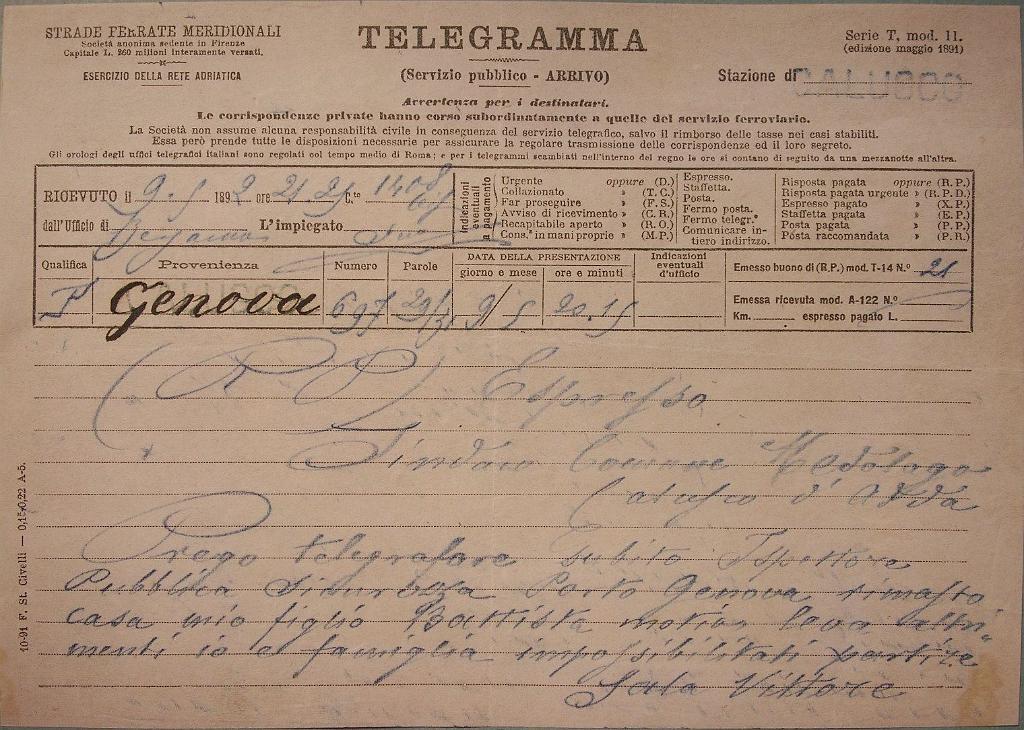 STRADE FERRATE MERIDIONALI
Società anonima sedente in Firenze
Capitale L. 260 milioni interamente versati.
ESERCIZIO DELLA RETE ADRIATICA
TELEGRAMMA
(Servizio pubblico - ARRIVO)
Serie T, mod. 11.
(edizione maggio 1891)
Stazione di
Avvertenza per i destinatari.
Le corrispondenze private hanno corso subordinatamente a quelle del servizio ferroviario.
La Società non assume alcuna responsabilità civile in conseguenza del servizio telegrafico, salvo il rimborso delle tasse nei casi stabiliti.
Essa però prende tutte le disposizioni necessarie per assicurare la regolare trasmissione delle corrispondenze ed il loro segreto.
Gli orologi degli uffici telegrafici italiani sono regolati col tempo medio di Roma; e per i telegrammi scambiati nell'interno del regno le ore si contano di seguito da una mezzanotte all'altra.
RICEVUTO il 9-5 1892 ore 21 25 C.te
dall'Ufficio di Bergamo L'impiegato
Indicazioni eventuali a pagamento
Urgente oppure (D.)
Collazionato » (T. C.)
Far proseguire » (F. S.)
Avviso di ricevimento » (C. R.)
Recapitabile aperto » (R. O.)
Cons.e in mani proprie » (M. P.)
Espresso.
Staffetta.
Posta.
Fermo posta.
Fermo telegr.o
Comunicare in-
tiero indirizzo.
Risposta pagata oppure (R. P.)
Risposta pagata urgente » (R. P. D.)
Espresso pagato » (X. P.)
Staffetta pagata » (E. P.)
Posta pagata » (P. P.)
Posta raccomandata » (P. R.)
Qualifica
Provenienza
Numero
Parole
DATA DELLA PRESENTAZIONE
giorno e mese
ore e minuti
Indicazioni
eventuali
d'ufficio
Emesso buono di (R.P.) mod. T-14 N.o 21
Emessa ricevuta mod. A-122 N.o
Km. espresso pagato L.
P Genova 697 29/ 9/5 20.15
(R P) Espresso
Sindaco Comune Medolago
d'Adda
Prego telegrafare subito Ispettore
Pubblica Sicurezza Porto Genova rimasto
casa mio figlio Battista motivo leva altri
menti io e famiglia impossibilitati partire
Sala Vittore
10-91 F. St. Civelli — 0,15-0,22 A-5.